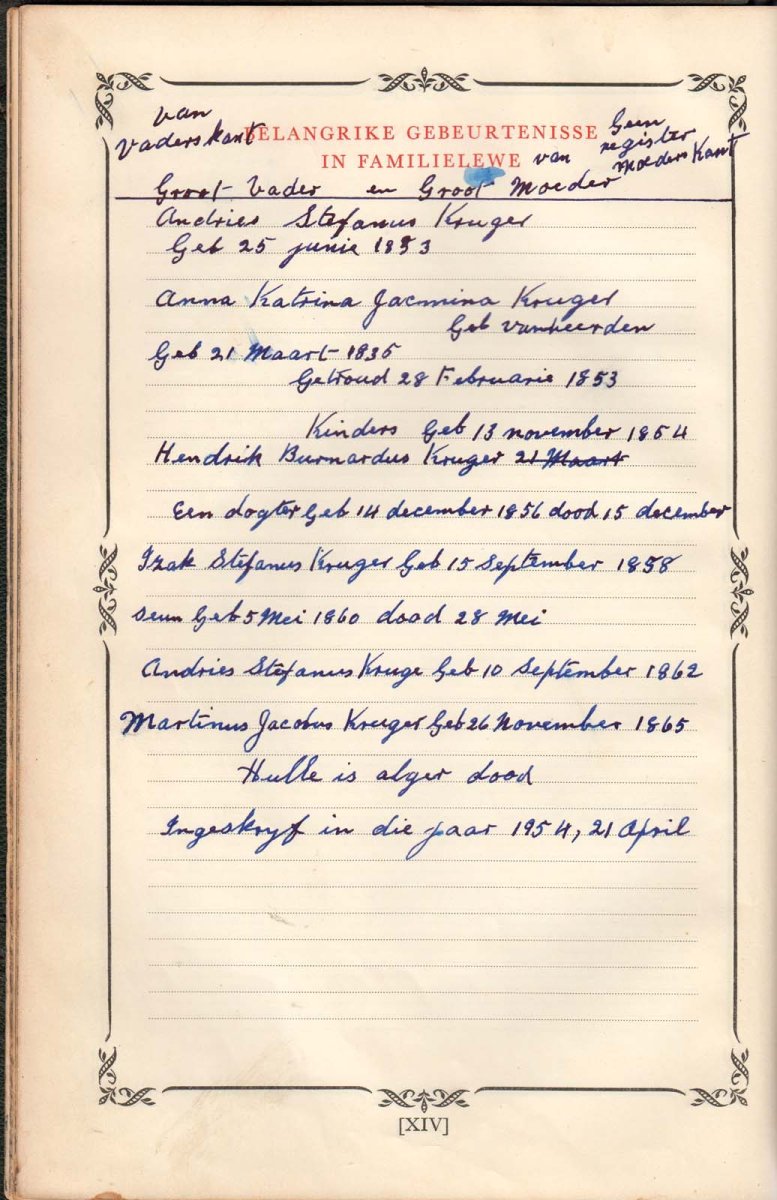 van
Vaderskant
BELANGRIKE GEBEURTENISSE
IN FAMILIELEWE
van
Geen
register
moeders Kant
Groot Vader en Groot Moeder
Andries Stefanus Kruger
Geb 25 junie 1853
Anna Katrina Jacmina Kruger
Geb vanheerden
Geb 21 Maart 1835
Getroud 28 Februarie 1853
Kinders Geb 13 november 1854
Hendrik Burnardus Kruger 21 Maart
Een dogter Geb 14 december 1856 dood 15 december
Izak Stefanus Kruger Geb 15 September 1858
seun Geb 5 Mei 1860 dood 28 Mei
Andries Stefanus Kruge Geb 10 September 1862
Martinus Jacobus Kruger Geb 26 November 1865
Hulle is alger dood
Ingeskryf in die jaar 1954, 21 April
[XIV]